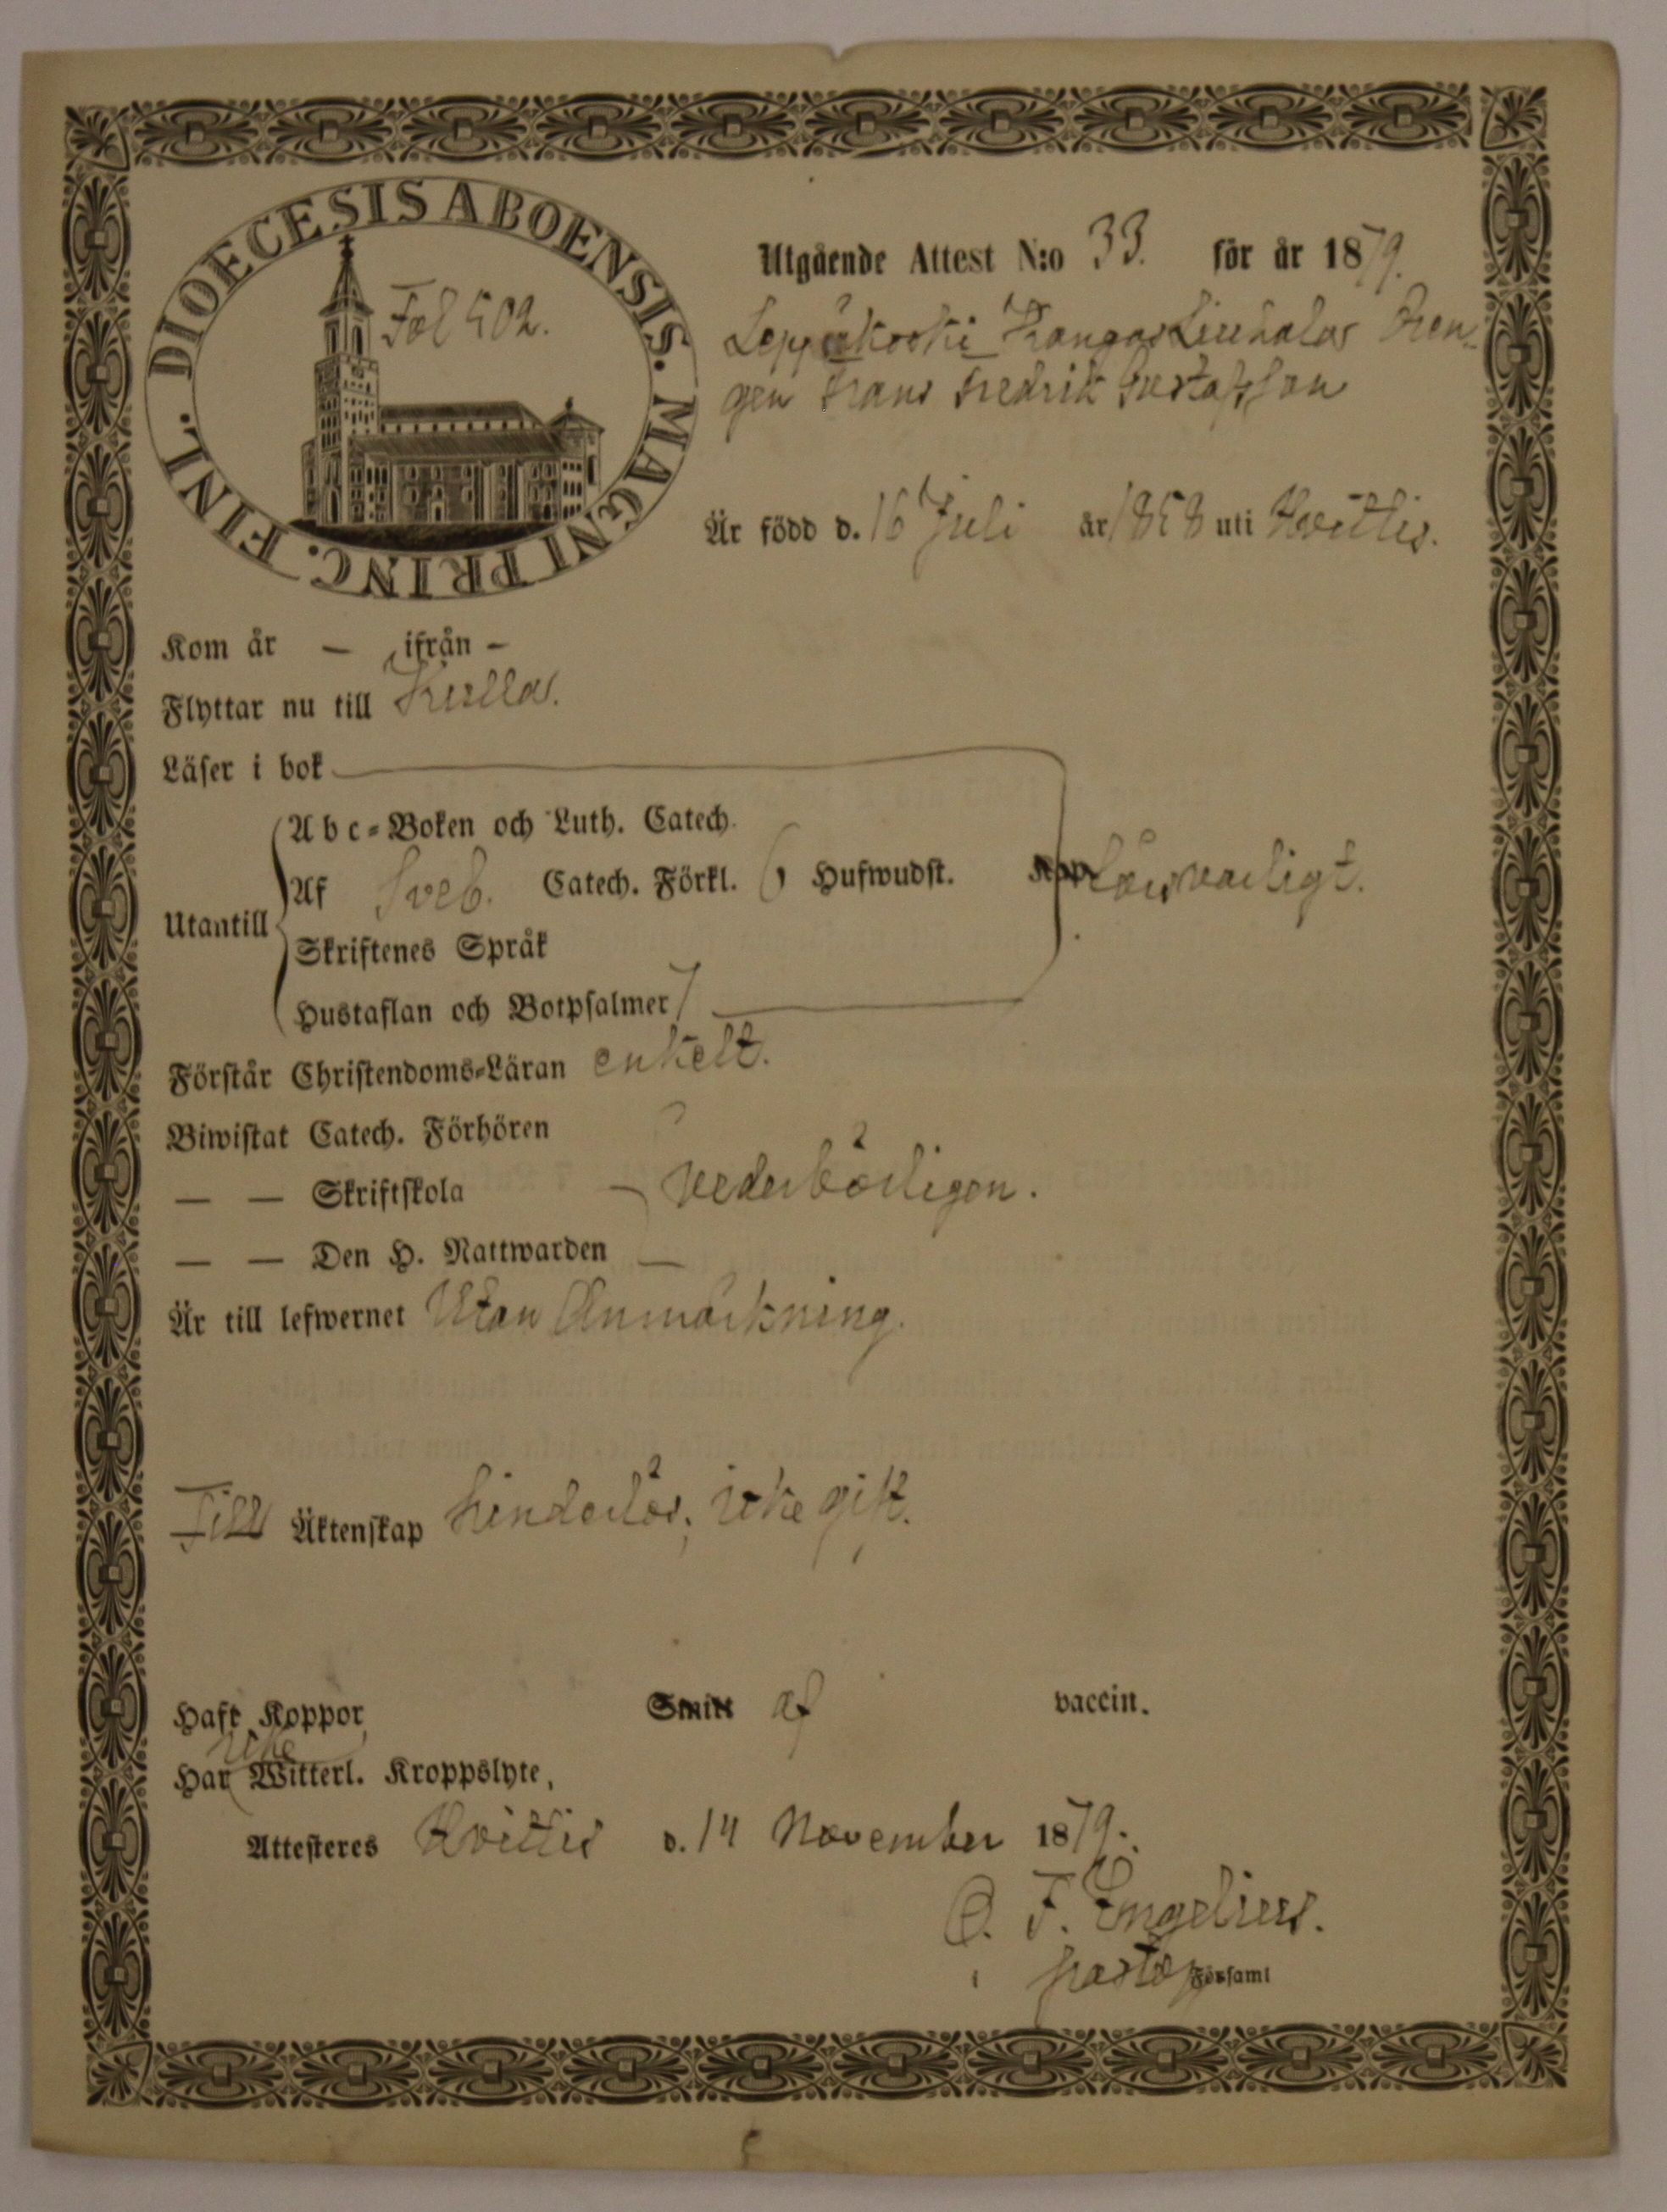 DIOECESIS ABOENSIS. MAGNI PRINC. FINL.
Fol 502.
Utgående Attest N:o 33. för år 1879.
Leppäkoski Drengen
Frans Fredrik Gustafsson
Är född d. 16 Juli år 1858 uti Hvittis.
Kom år — ifrån —
Flyttar nu till Kulla.
Läser i bok
Abc-Boken och Luth. Catech.
Af Sveb. Catech. Förkl. 6 Hufwudst. försvarligt.
Utantill
Skriftenes Språk
Hustaflan och Botpsalmer 7
Förstår Christendoms-Läran enkelt.
Biwistat Catech. Förhören
— — Skriftskola vederbörligen.
— — Den H. Nattwarden
Är till lefwernet Utan Anmärkning.
Till Äktenskap hinderlös; icke gift.
Haft Koppor af vaccin.
icke
Har Witterl. Kroppslyte,
Attesteres Hvittis d. 14 November 1879.
F. Engelius.
i pastor Församl